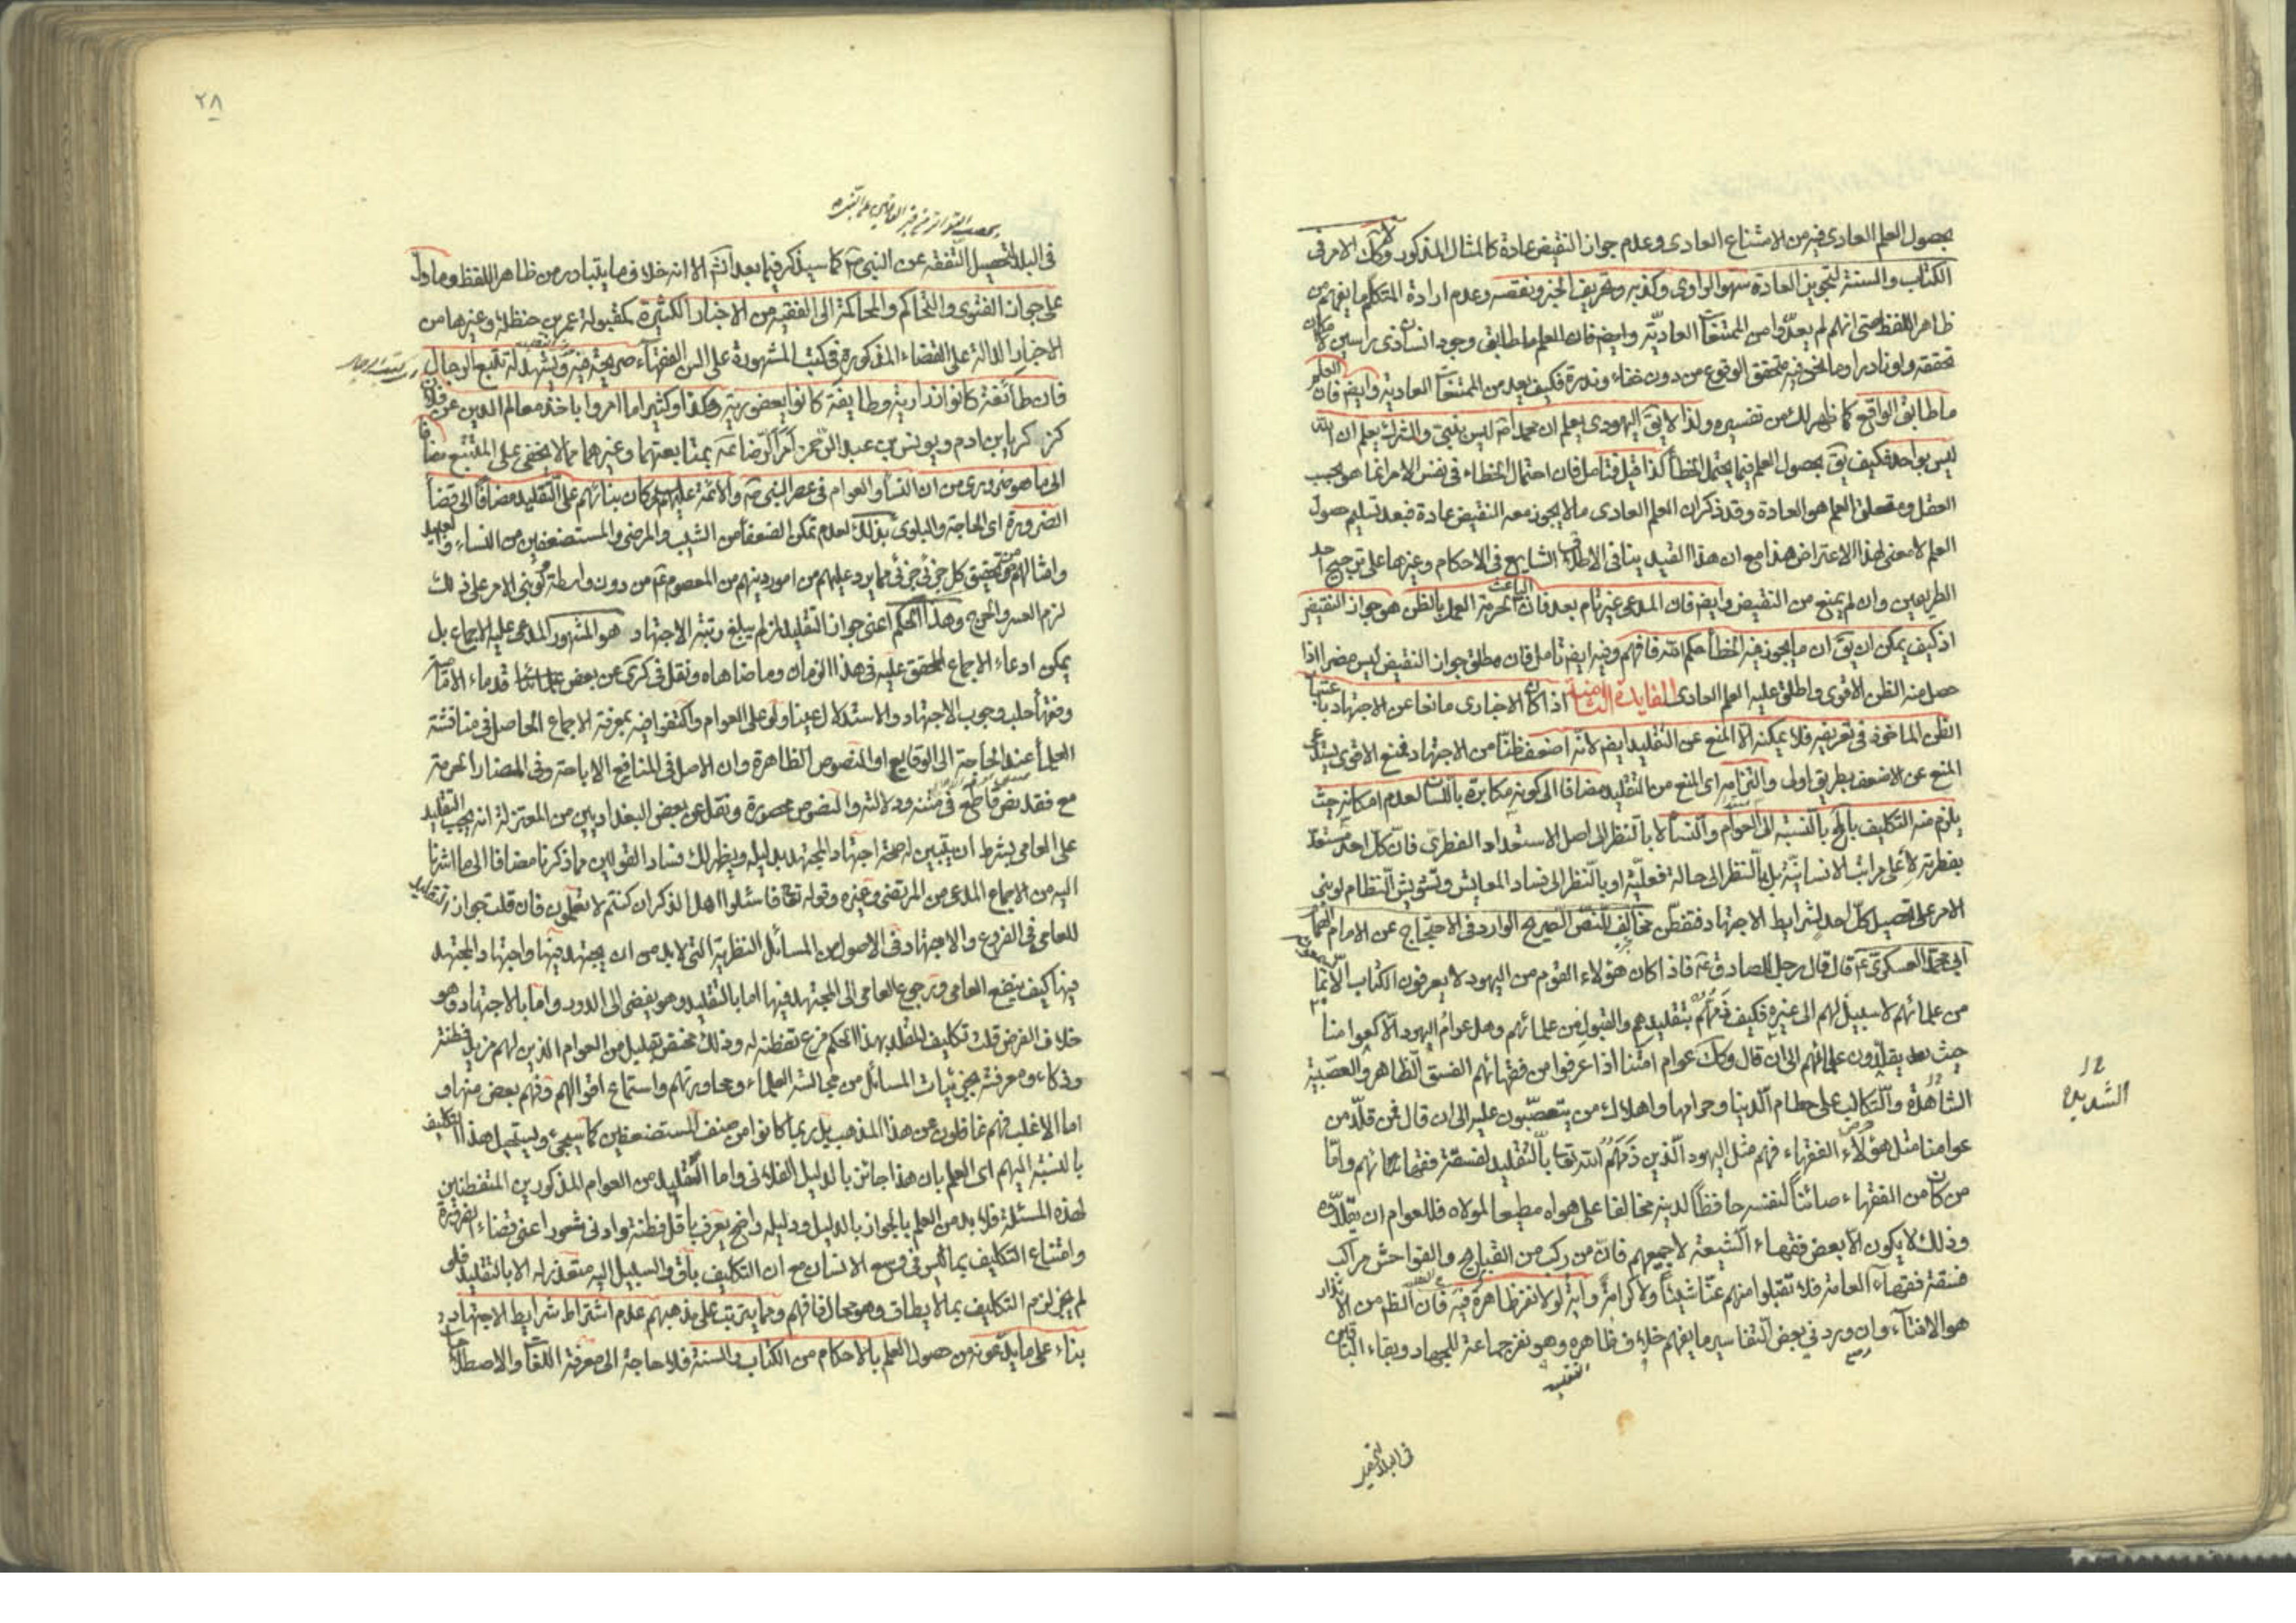 بحصول العلم العادى فيه من الامتناع العادى وعدم جواز النقيض عادة كالمثال المذكور وكك الامر فى
الكتاب والسنة لتجويز العادة سهو الراوى وكذبه وتحريف الخبر ونقصه وعدم ارادة المتكلم ما يفهم من
ظاهر اللفظ حتى انهم لم يعدّوا من الممتنعات العاديّة وايضا فان العلم ما طابق وجود انسان ذى راسين لامكان
تحققه ولو نادرا وما نحن فيه متحقق الوقوع من دون خفاء وندرة فكيف يعد من الممتنعات العادية وايضا فان العلم
ما طابق الواقع كما ظهر لك من تفسيره ولذا لا يق اليهودى يعلم ان محمدا ص ليس بنبى والمشرك يعلم ان الله
ليس بواحد فكيف يق بحصول العلم فيما يحتمل الخطأ كذا قيل فتامل فان احتمال الخطاء فى نفس الامر انما هو بحسب
العقل ومتعلق العلم هو العادة وقد ذكر ان العلم العادى ما لا يجوز معه النقيض عادة فبعد تسليم حصول
العلم لا معنى لهذا الاعتراض هذا مع ان هذا القيد ينافى الاطلاق الشايع فى الاحكام وغيرها على ترجيح احد
الطريقين وان لم يمنع من النقيض وايضا فان المدعى غير تام بعد فان الباعث لحرمة العمل بالظن هو جواز النقيض
اذ كيف يمكن ان يق ان ما يجوز فيه الخطأ حكم الله فافهم وفيه ايضا تامل فان مطلق جواز النقيض ليس مضرا اذا
حصل منه الظن الاقوى واطلق عليه العلم العادى الفايدة الثامنة اذا كان الاخبارى مانعا عن الاجتهاد باعتبار
الظن الماخوذ فى تعريفه فلا يمكنه الا المنع عن التقليد ايضا لانه اضعف ظنّا من الاجتهاد فمنع الاقوى يستدعى
المنع عن الاضعف بطريق اولى والتزامه اى المنع من التقليد مضافا الى كونه مكابرة باللسان لعدم امكانه حيث
يلزم منه التكليف بالمحال بالنسبة الى العوام والنساء لا بالنظر الى اصل الاستعداد الفطرى فانّ كل احد مستعدّ
بفطرته لأعلى مراتب الانسانيّة بل بالنظر الى حالة فعليّة او بالنظر الى فساد المعايش وتشويش النظام لو بنى
الامر على تحصيل كلّ احد لشرايط الاجتهاد فتفطّن مخالف للنصّ الصريح الوارد فى الاحتجاج عن الامام الهمام
ابى محمد العسكرى ع قال قال رجل للصادق ع فاذا كان هؤلاء القوم من اليهود لا يعرفون الكتاب الّا بما يسمعونه
من علمائهم لا سبيل لهم الى غيره فكيف ذمّهم بتقليدهم والقبول من علمائهم وهل عوام اليهود الّا كعوامنا
حيث يقلّدون علمائهم الى ان قال وكك عوام امّتنا اذا عرفوا من فقهائهم الفسق الظاهر والعصبيّة
الشديدة
الشاهدة والتكالب على حطام الدنيا وحرامها واهلاك من يتعصّبون عليه الى ان قال فمن قلّد من
عوامنا مثل هؤلاء الفقهاء فهم مثل اليهود الّذين ذمّهم الله تعا بالتقليد لفسقة فقهائهم وامّا
من كان من الفقهاء صائنا لنفسه حافظا لدينه مخالفا على هواه مطيعا لمولاه فللعوام ان يقلّدوه
وذلك لا يكون الّا بعض فقهاء الشيعة لا جميعهم فانّ من ركب من القبايح والفواحش مراكب
فسقة فقهاء العامة فلا تقبلوا منهم عنّا شيئا ولا كرامة وآية لولا نفر ظاهرة فيه فان الظ من الانذار
هو الافتاء وان ورد فى بعض التفاسير ما يفهم خلاف ظاهره وهو نفر جماعة للجهاد وبقاء الباقى
فى البلد لتحصيل
٢٨
فى البلد لتحصيل التفقه عن النبى ص كما سيذكر فيما بعد انشم الا انه خلاف ما يتبادر من ظاهر اللفظ وما دل
على جواز الفتوى والتحاكم والمحاكمة الى الفقيه من الاخبار الكثيرة كمقبولة عمر بن حنظلة وغيرها من
الاخبار الدالة على القضاء المذكورة فى كتب المشهورة على السن الفقهاء صريحة فيه ويشهد له تتبع الرجال
فان طائفة كانوا زرارية وطايفة كانوا يعفورية وهكذا وكثيرا ما امروا باخذ معالم الدين عن فلان
كزكريا بن ادم ويونس بن عبد الرحمن امرا لرضا ع بمتابعتهما وغيرهما مما لا يخفى على المتتبع مضافا
الى ما هو ضرورى من ان النساء والعوام فى عصر النبى ص والائمة عليهم السلام كان بنائهم على التقليد مضافا الى قضاء
الضرورة اى الحاجة والبلوى بذلك لعدم تمكن الضعفاء من الشيب والمرضى والمستضعفين من النساء والعبيد
وامثالهم من تحقيق كل جزئى جزئى مما يرد عليهم من امور دينهم من المعصوم ع من دون واسطة فلو بنى الامر على ذلك
لزم العسر والحرج وهذا الحكم اعنى جواز التقليد لمن لم يبلغ رتبة الاجتهاد هو المشهور المدعى عليه الاجماع بل
يمكن ادعاء الاجماع المحقق عليه فى هذا الزمان وما ضاهاه ونقل فى كرى عن بعض قدماء الامامية
وفقهاء حلب وجوب الاجتهاد والاستدلال عينا ولو على العوام واكتفوا فيه بمعرفة الاجماع الحاصل فى مناقشة
العلماء عند الحاجة الى الوقايع او النصوص الظاهرة وان الاصل فى المنافع الاباحة وفى المضار الحرمة
مع فقد نص قاطع فى متنه ودلالته والنصوص محصورة ونقل عن بعض البغداديين من المعتزلة انه يجب التقليد
على العامى بشرط ان يتبين له صحة اجتهاد المجتهد بدليله ويظهر لك فساد القولين مما ذكرنا مضافا الى ما اشرنا
اليه من الاجماع المدعى من المرتضى وغيره وقوله تعا فاسئلوا اهل الذكر ان كنتم لا تعلمون فان قلت جواز التقليد
للعامى فى الفروع والاجتهاد فى الاصول من المسائل النظرية التى لابد من ان يجتهد فيها واجتهاد المجتهد
فيها كيف ينفع العامى ورجوع العامى الى المجتهد فيها اما بالتقليد وهو يفضى الى الدور واما بالاجتهاد وهو
خلاف الفرض قلت تكليف المقلد بهذا الحكم فرع تفطنه له وذلك مختص بقليل من العوام الذين لهم مزيد فطنة
وذكاء ومعرفة بجزئيات المسائل من مجالسة العلماء ومحاورتهم واستماع اقوالهم وفهم بعض منها و
اما الاغلب فهم غافلون عن هذا المذهب بل ربما كانوا من صنف المستضعفين كما سيجئ ويستحيل هذا التكليف
بالنسبة اليهم اى العلم بان هذا جائز بالدليل الفلانى واما التقليد من العوام المذكورين المتفطنين
لهذه المسئلة فلا بد من العلم بالجواز بالدليل ودليله واضح يعرف باقل فطنة وادنى شعور اعنى قضاء الضرورة
وامتناع التكليف بما ليس فى وسع الانسان مع ان التكليف باق والسبيل اليه متعذر له الا بالتقليد فلو
لم يجز لزم التكليف بما لا يطاق وهو محال فافهم ومما يترتب على مذهبهم عدم اشتراط شرايط الاجتهاد
بناء على ما يدّعونه من حصول العلم بالاحكام من الكتاب والسنة فلا حاجة الى معرفة اللغات والاصطلاحات